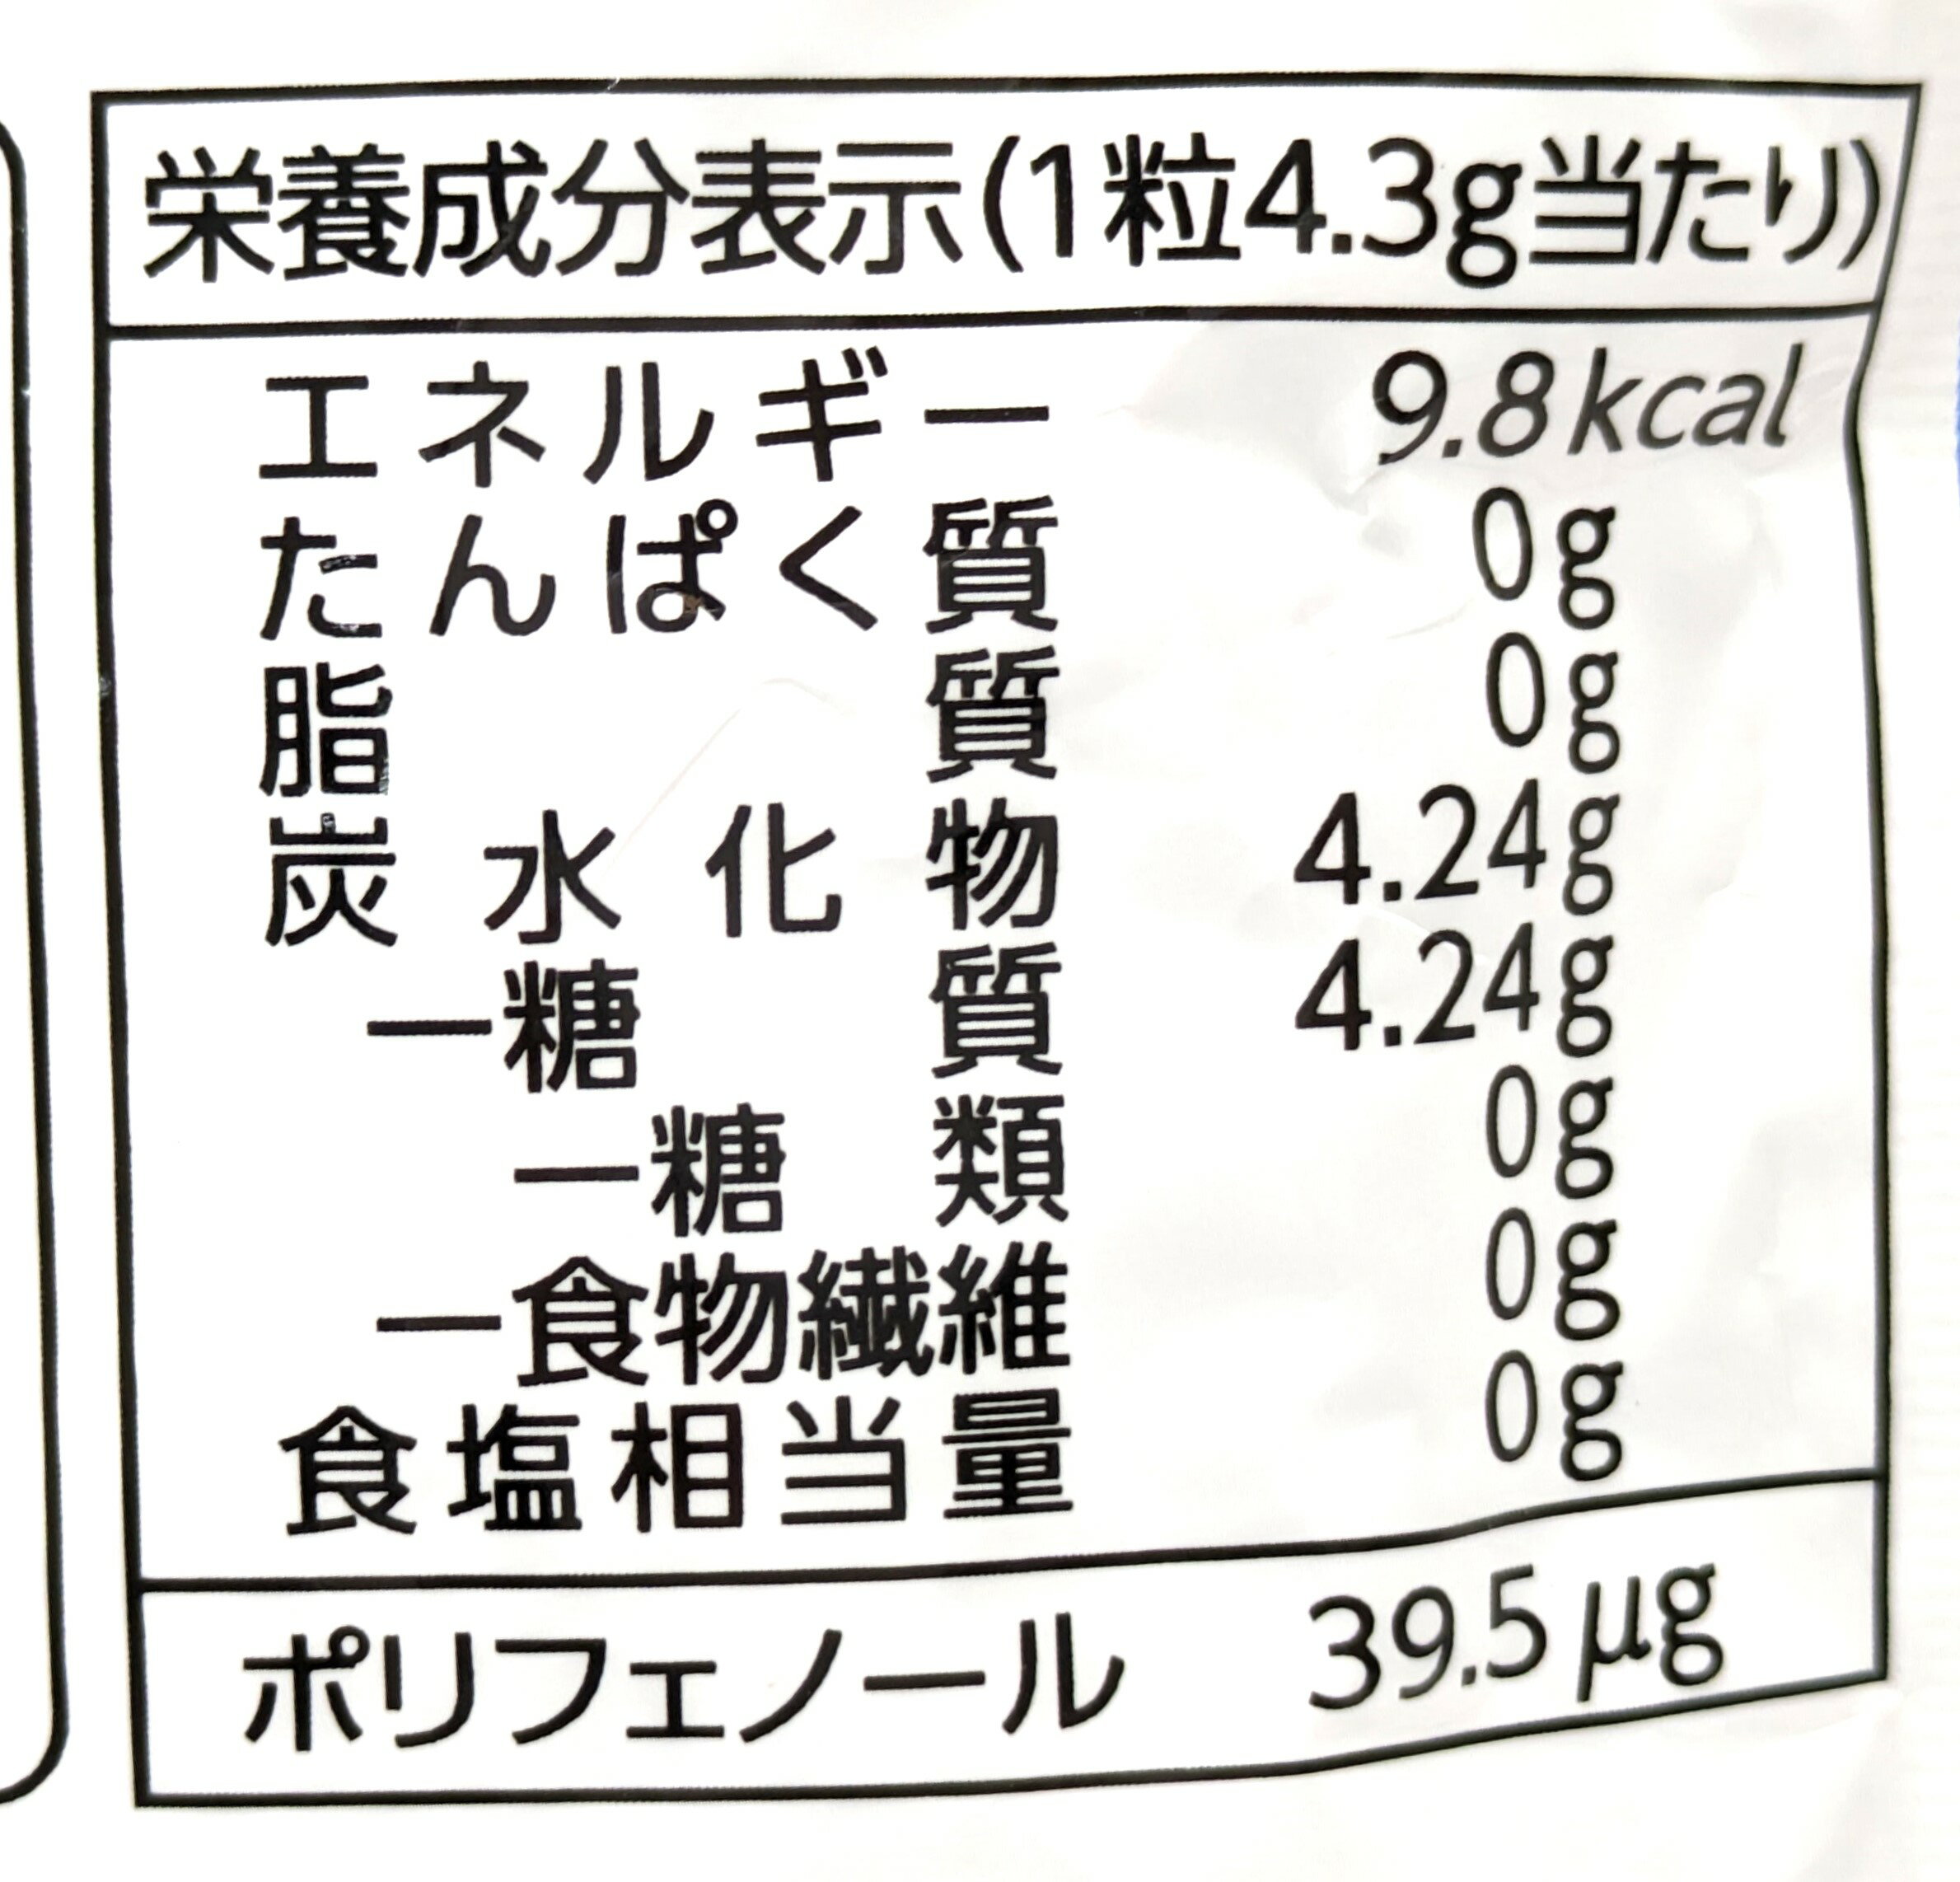 栄養成分表示(1粒4.3g当たり)
エネルギー 9.8kcal
たんぱく質 0g
脂質 0g
炭水化物 4.24g
―糖質 4.24g
―糖類 0g
―食物繊維 0g
食塩相当量 0g
ポリフェノール 39.5μg